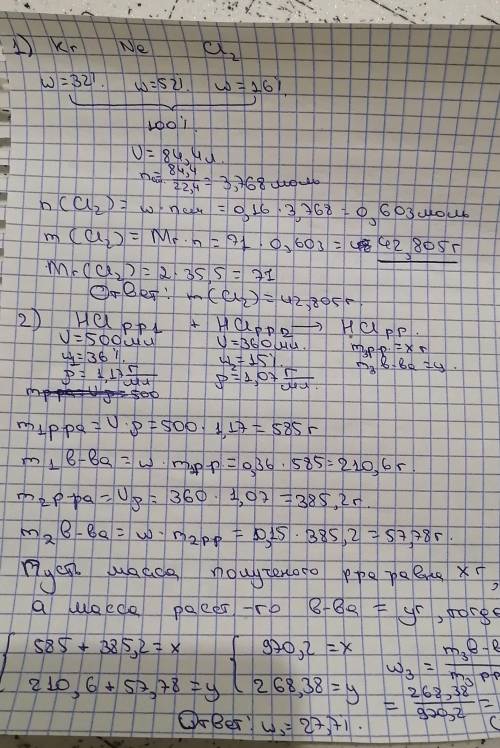 1) Kr Ne Cl₂
w=32% w=52% w=16%
100%
V=84,4л.
n=84,4/22,4=3,768 моль
n(Cl₂)=w·nсм=0,16·3,768=0,603 моль
m(Cl₂)=Mr·n=71·0,603=42,805г
Mr(Cl₂)=2·35,5=71
Ответ: m(Cl₂)=42,805г.
2) HCl рр1 + HCl рр2 → HCl рр.
V=500мл V=360мл m₃рр=xг
w=36% w=15% m₃в-ва=y.
ρ=1,17 г/мл ρ=1,07 г/мл
m₁рра=V·ρ=500·1,17=585г
m₁в-ва=w·m₁рр=0,36·585=210,6г.
m₂р-ра=Vρ=360·1,07=385,2г.
m₂в-ва=w·m₂рр=0,15·385,2=57,78г.
Пусть масса полученого рра равна xг,
а масса раст-го в-ва = yг, тогда
{585+385,2=x {970,2=x w₃=m₃в-в/m₃рр
{210,6+57,78=y {268,38=y =268,38/970,2=
Ответ: w₃=27,7%.